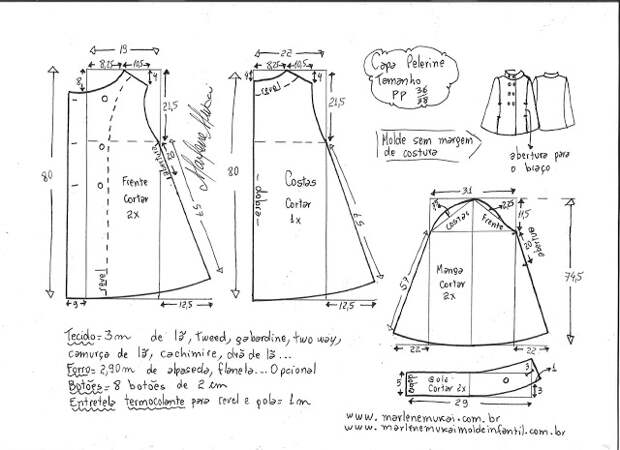 19
8,25
10,5
8
4
21,5
80
abertura
23
Frente
Cortar
2x
57
revel
9
12,5
Marlene Mukai
22
8,25
10,5
4
4
revel
21,5
80
dobra
Costas
Cortar
1x
57
12,5
Capa Pelerine
Tamanho
PP 36
38
Molde sem margem
de costura
abertura para
o braço
31
23
22,5
11,5
Costas
Frente
abertura
23
57
74,5
Manga
Cortar
2x
22
22
5
dobra
Gola
Cortar 2x
3
1
3
29
Tecido = 3m de lã, tweed, gabardine, two way,
camurça de lã, cachimire, drá de lã...
Forro = 2,90m de alpaseda, flanela... Opcional
Botões = 8 botões de 2 cm
Entretela termocolante para revel e gola = 1m
www.marlenemukai.com.br
www.marlenemukaimoldeinfantil.com.br